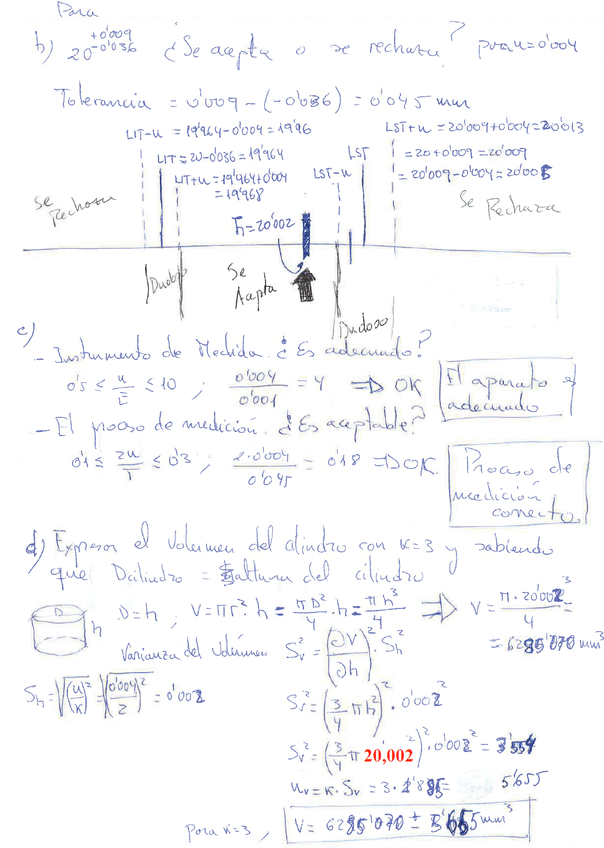 Para
b) 20 +0'009 -0'036 ¿Se acepta o se rechaza? para u=0'004
Tolerancia = 0'009 - (-0'036) = 0'045 mm
LIT-u = 19'964-0'004 = 19'96
LIT=20-0'036=19'964
LIT+u=19'964+0'004
= 19'968
LST-u
LST
LST+u=20'004+0'004=20'013
=20+0'009=20'009
=20'009-0'004=20'005
Se Rechaza
h=20'002
Se Rechaza
Dudoso
Se Acepta
Dudoso
c)
- Instrumento de Medida. ¿Es adecuado?
0'5 ≤ u/E ≤ 10 ; 0'004/0'001 = 4 => OK
El aparato es adecuado
- El proceso de medición. ¿Es aceptable?
0'1 ≤ 2u/T ≤ 0'3 ; 2·0'004/0'045 = 0'18 => OK.
Proceso de medición correcto
d) Expresar el volumen del cilindro con K=3 y sabiendo
que Dcilindro = altura del cilindro
D
h
D=h ; V=πr²·h = πD²/4·h = πh³/4 => V = π·20'002³/4 =
= 6285'070 mm³
Varianza del volumen Sv² = (∂V/∂h)²·Sh²
Sh = √(u/K)² = √(0'004/2)² = 0'002
Sv² = (3/4 πh²)²·0'002²
Sv² = (3/4 π 20,002²)²·0'002² = 3'554
uv = K·Sv = 3·1'885 = 5'655
Para K=3, V = 6285'070 ± 5'655 mm³